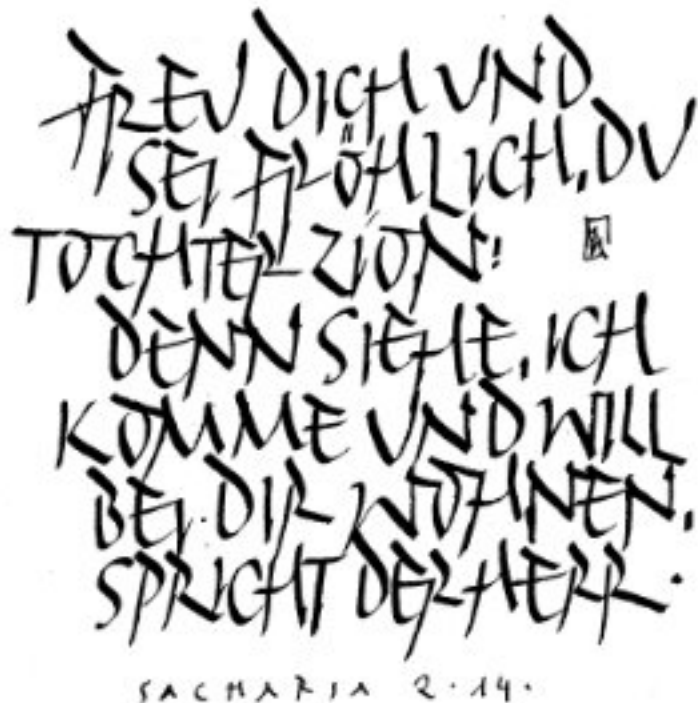 FREU DICH UND
SEI FRÖHLICH, DU
TOCHTER ZION!
DENN SIEHE, ICH
KOMME UND WILL
BEI DIR WOHNEN,
SPRICHT DER HERR.
SACHARIA 2.14.